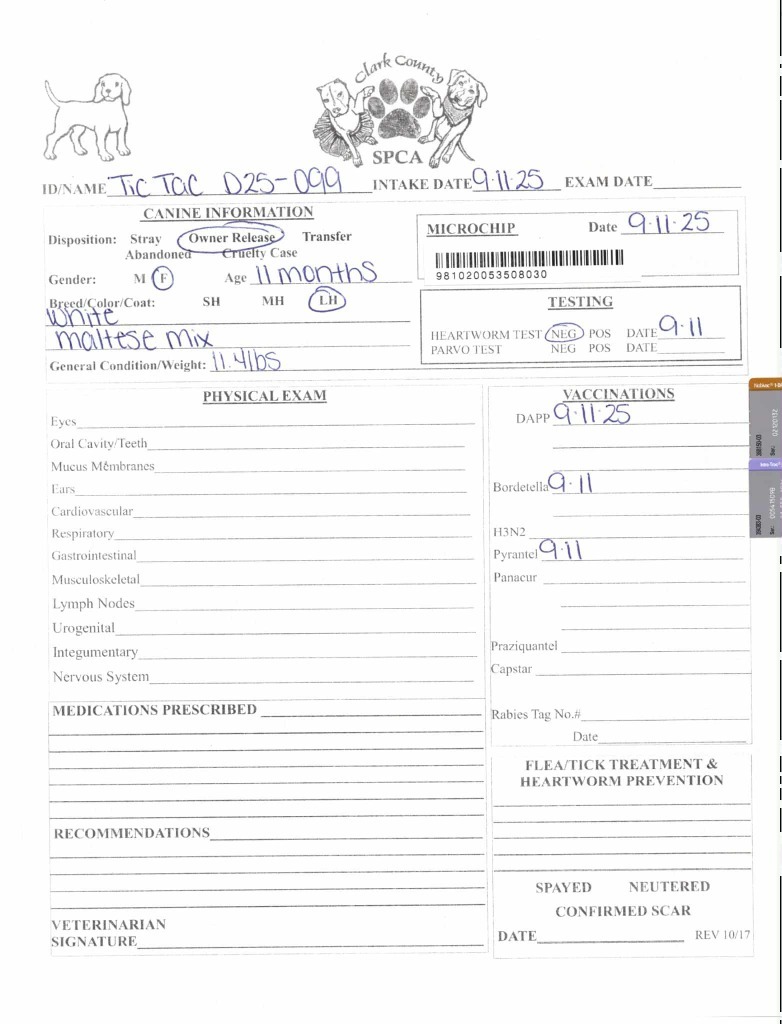 Clark County
SPCA
ID/NAME Tic Tac D25-099 INTAKE DATE 9·11·25 EXAM DATE
CANINE INFORMATION
Disposition: Stray Owner Release Transfer
Abandoned Cruelty Case
Gender: M F Age 11 months
Breed/Color/Coat: SH MH LH
White
maltese mix
General Condition/Weight: 11.4lbs
MICROCHIP Date 9·11·25
981020053508030
TESTING
HEARTWORM TEST NEG POS DATE 9·11
PARVO TEST NEG POS DATE
PHYSICAL EXAM
Eyes
Oral Cavity/Teeth
Mucus Membranes
Ears
Cardiovascular
Respiratory
Gastrointestinal
Musculoskeletal
Lymph Nodes
Urogenital
Integumentary
Nervous System
MEDICATIONS PRESCRIBED
RECOMMENDATIONS
VETERINARIAN
SIGNATURE
VACCINATIONS
DAPP 9·11·25
Bordetella 9·11
H3N2
Pyrantel 9·11
Panacur
Praziquantel
Capstar
Rabies Tag No.#
Date
FLEA/TICK TREATMENT &
HEARTWORM PREVENTION
SPAYED NEUTERED
CONFIRMED SCAR
DATE REV 10/17